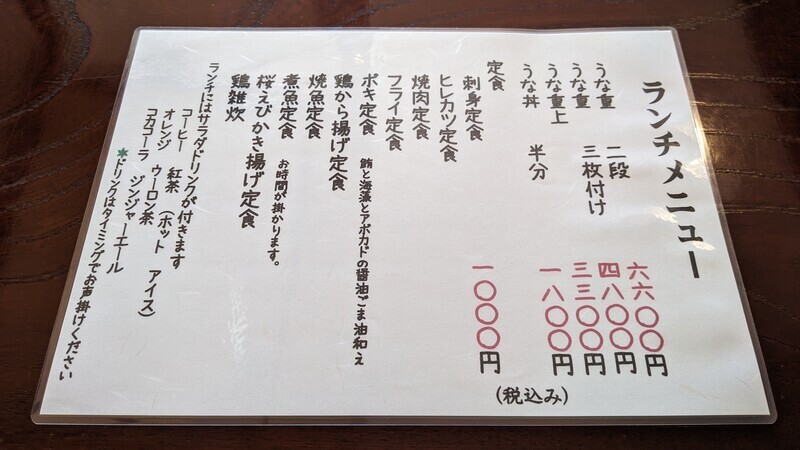 ランチメニュー
うな重 二段 六六〇〇円
うな重 三枚付け 四八〇〇円
うな重上 三三〇〇円
うな丼 半分 一八〇〇円
(税込み)
定食 一〇〇〇円
刺身定食
ヒレカツ定食
焼肉定食
フライ定食
ポキ定食 鮪と海藻とアボカドの醤油ごま油和え
鶏から揚げ定食
焼魚定食
煮魚定食 お時間が掛かります。
桜えびかき揚げ定食
鶏雑炊
ランチにはサラダ、ドリンクが付きます
コーヒー 紅茶 (ホット アイス)
オレンジ ウーロン茶
コカコーラ ジンジャーエール
*ドリンクはタイミングでお声掛けください